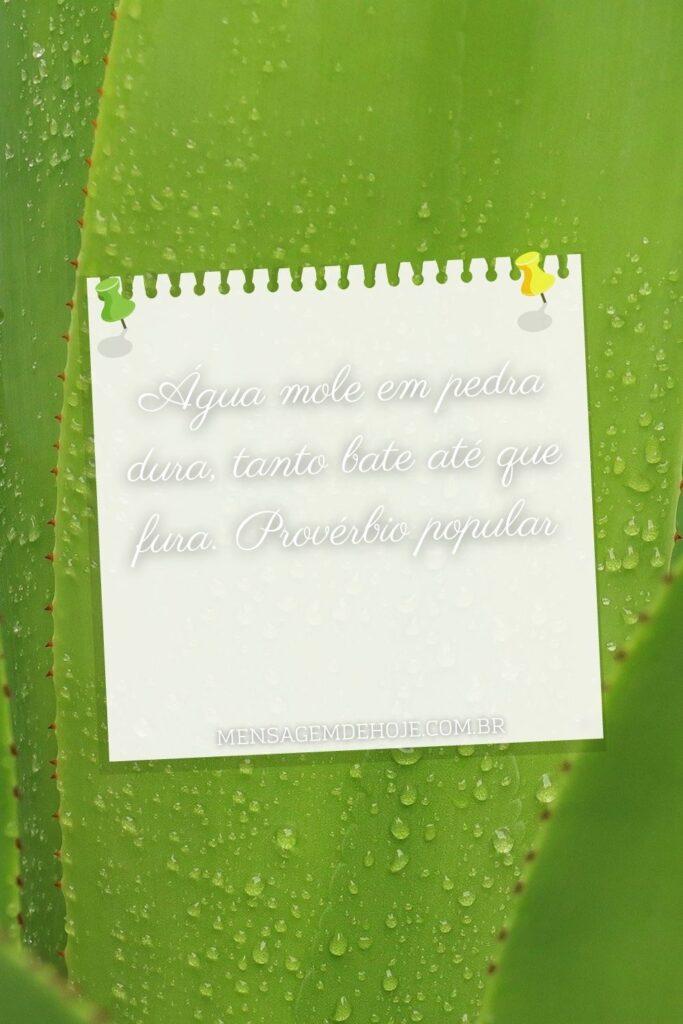 Água mole em pedra
dura, tanto bate até que
fura. Provérbio popular
MENSAGEMDEHOJE.COM.BR